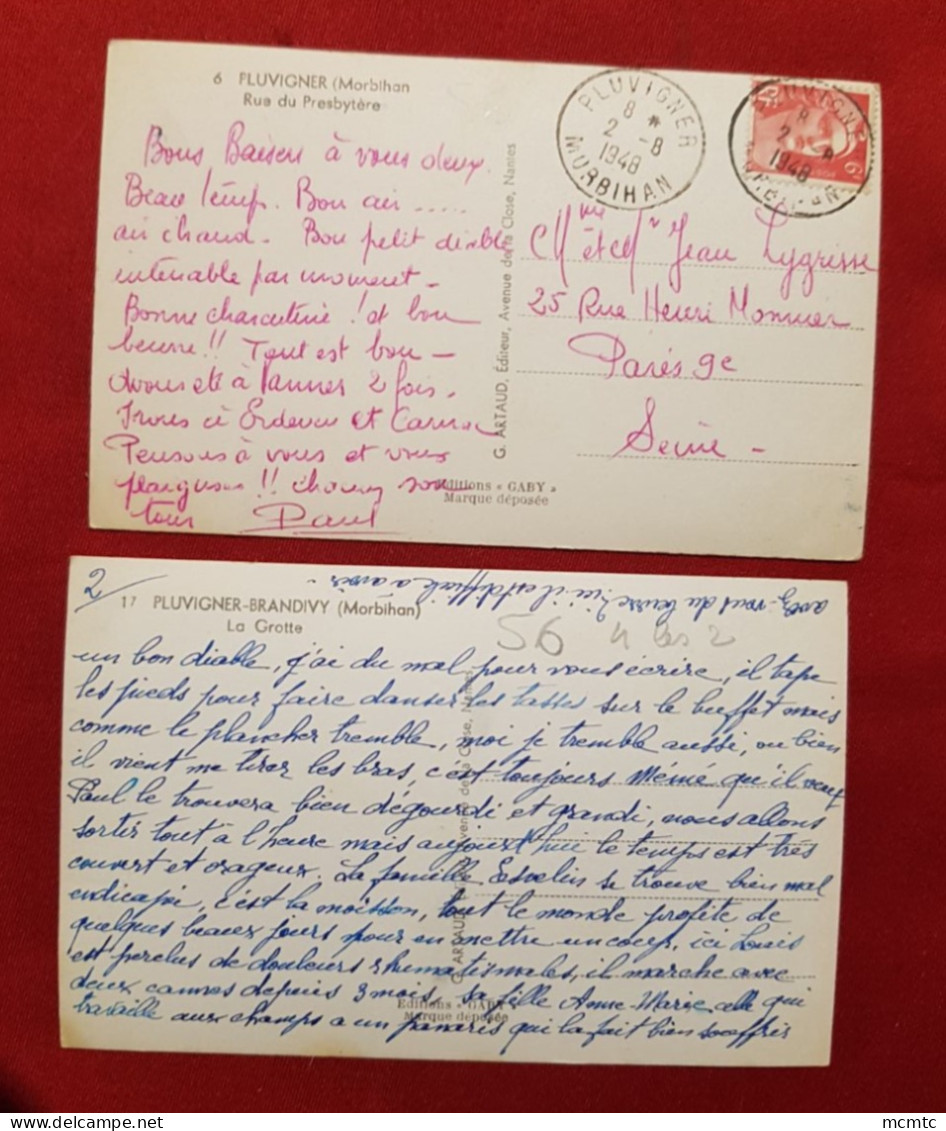 6 PLUVIGNER (Morbihan
Rue du Presbytère
Bons Baisers à vous deux.
Beau temps. Bon air .....
air chaud. Bon petit diable
intenable par moment -
Bonne charcuterie ! et bon
beurre !! Tout est bon -
Avons été à Vannes 2 fois.
Irons à Erdeven et Carnac
Pensons à vous et vous
plaignons !!
tous Paul
G. ARTAUD, Éditeur, Avenue de la Close, Nantes
Editions « GABY »
Marque déposée
PLUVIGNER
8 *
2 -8
1948
MORBIHAN
PLUVIGNER
8
2 -8
1948
MORBIHAN
Mme et Mr Jean Lygrisse
25 Rue Henri Monnier
Paris 9e
Seine -
2/
avez-vous du beurre ? ici il est difficile à avoir -
17 PLUVIGNER-BRANDIVY (Morbihan)
La Grotte
56 4 les 2
un bon diable, j'ai du mal pour vous écrire, il tape
les pieds pour faire danser les tasses sur le buffet mais
comme le plancher tremble, moi je tremble aussi, ou bien
il vient me tirer les bras, c'est toujours Mémé qu'il veut
Paul le trouvera bien dégourdi et grandi, nous allons
sortir tout à l'heure mais aujourd'hui le temps est très
couvert et orageux. La famille se trouve bien mal
endicapé, c'est la moisson, tout le monde profite de
quelques beaux jours pour en mettre un coup, ici Louis
est perclus de douleurs rhumatismales, il marche avec
deux cannes depuis 3 mois, sa fille Anne-Marie celle qui
travaille aux champs a un panaris qui la fait bien souffrir
G. ARTAUD, Avenue de la Close, Nantes
Editions « GABY »
Marque déposée
mcmtc